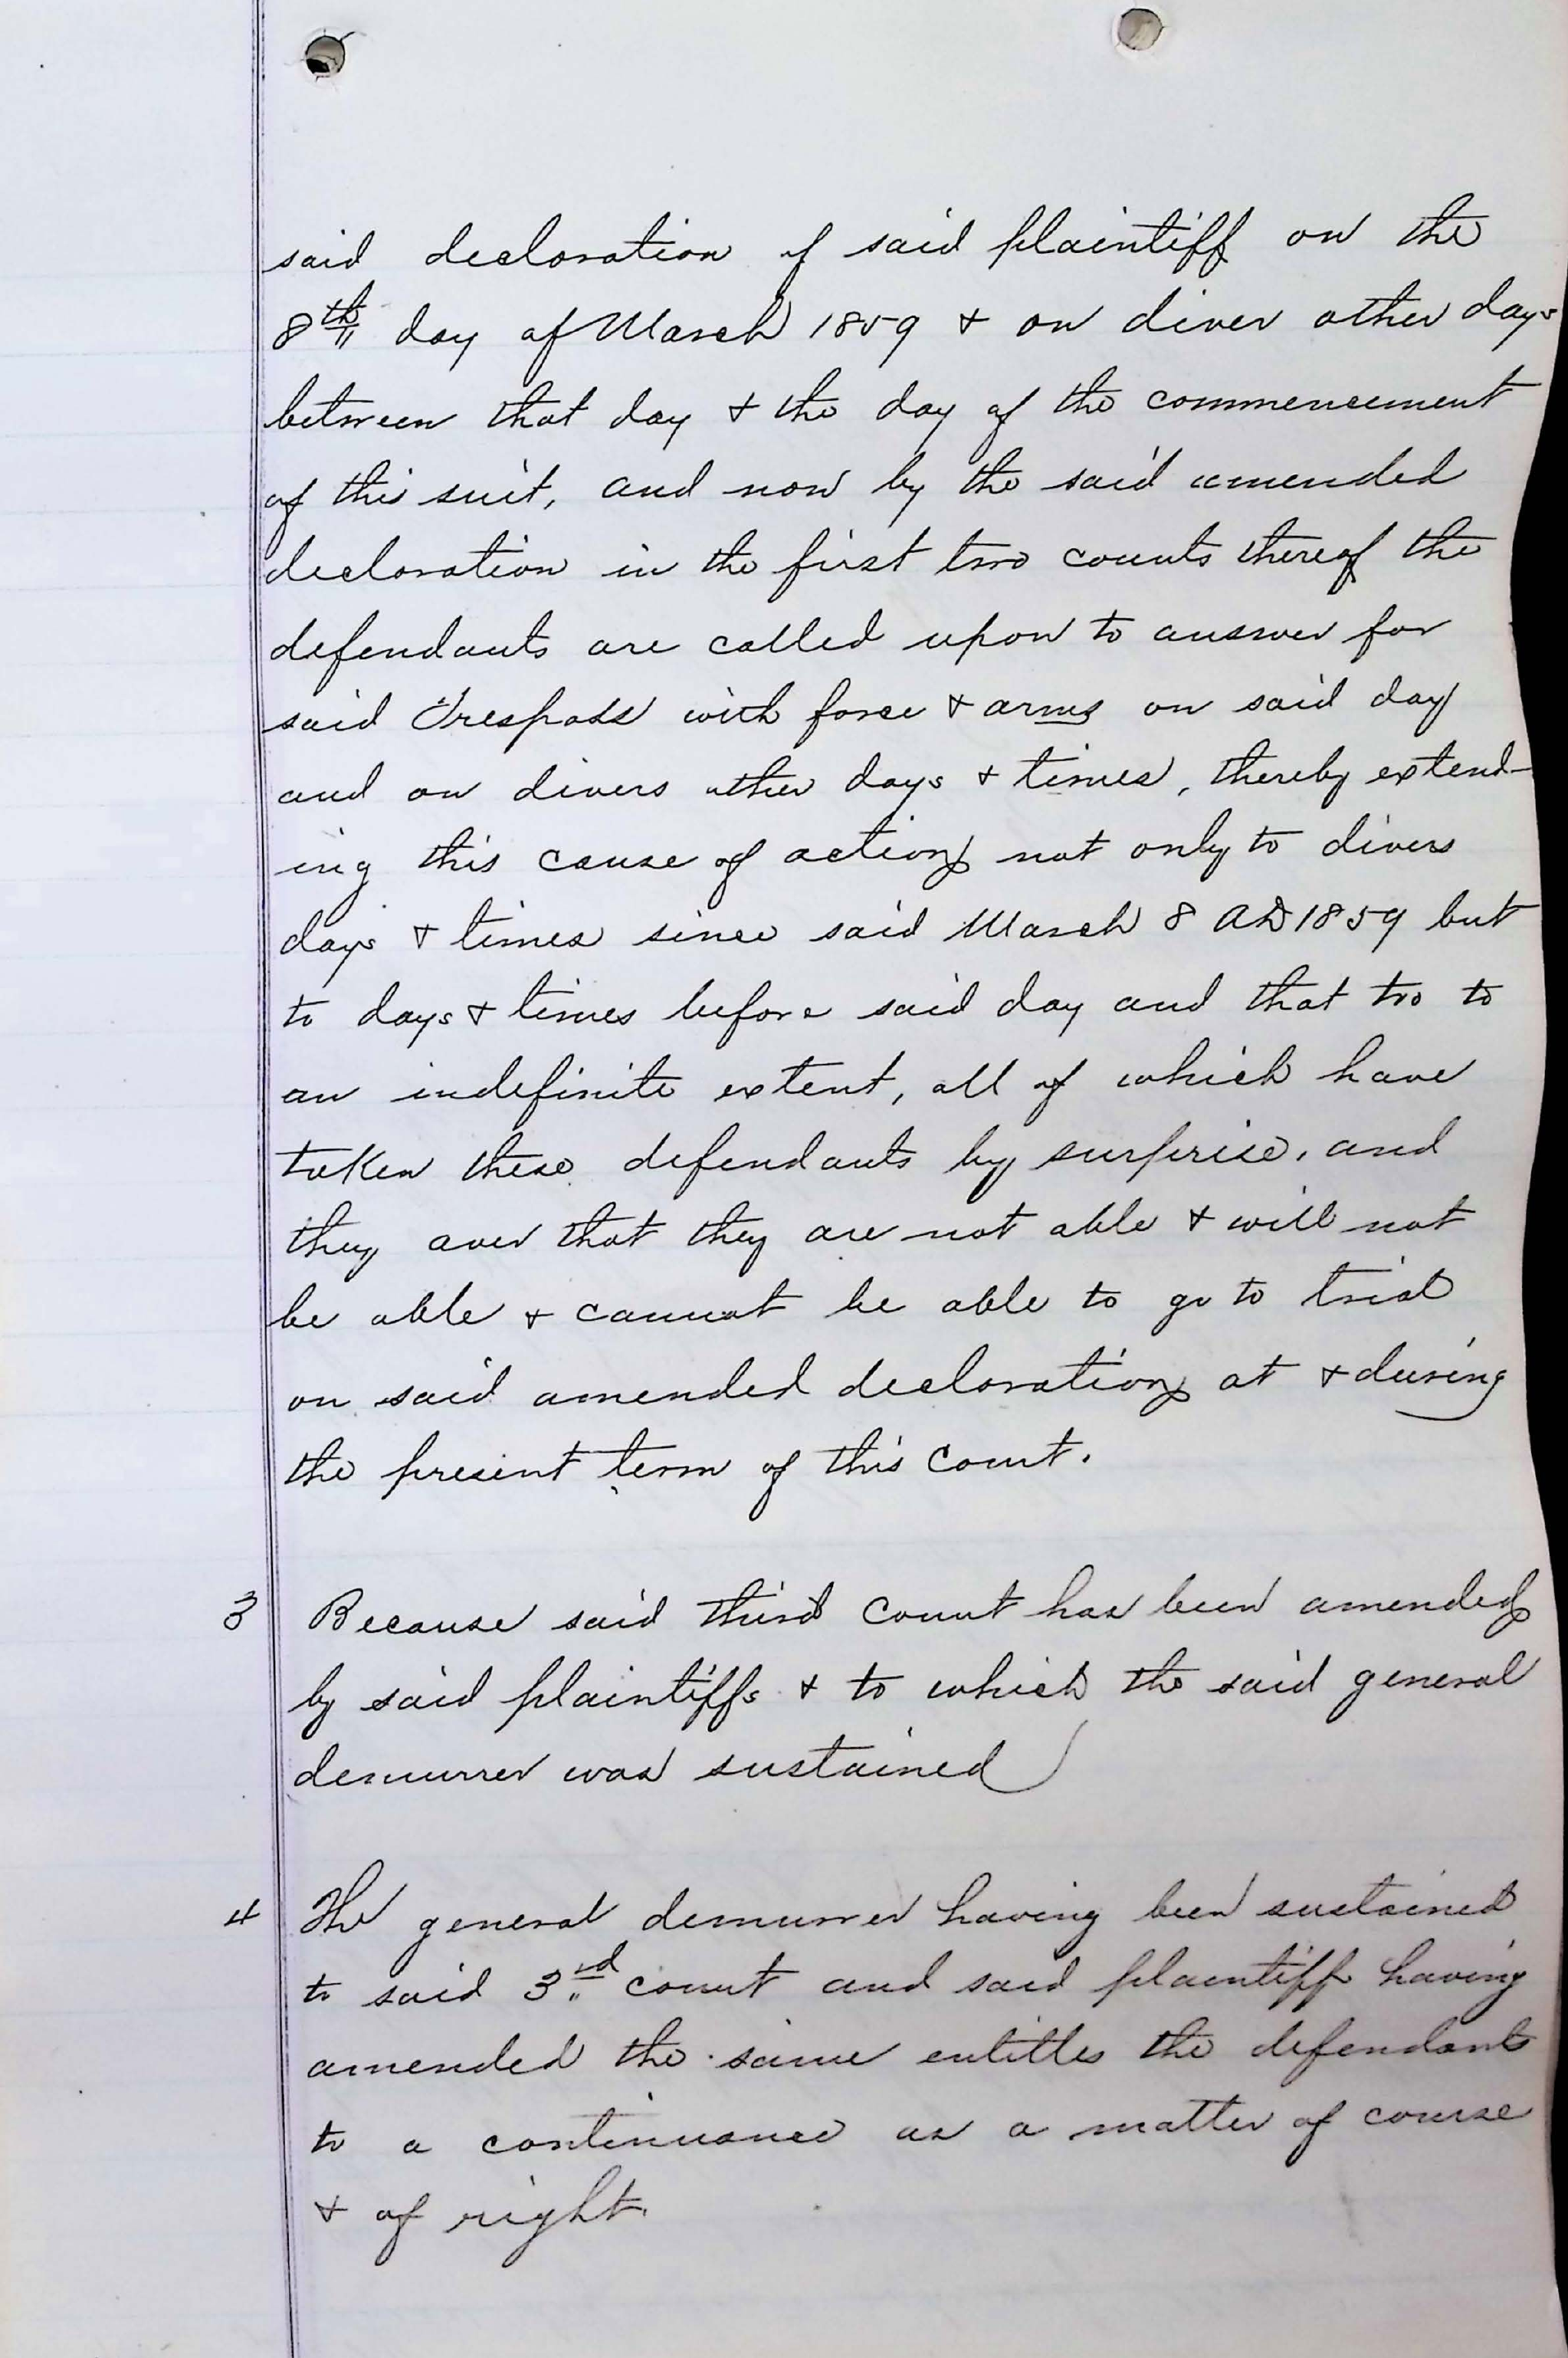 said declaration of said plaintiff on the
8th day of March 1859 & on diver other days
between that day & the day of the commencement
of this suit, and now by the said amended
declaration in the first two counts thereof the
defendants are called upon to answer for
said Trespass with force & arms on said day
and on divers other days & times, thereby extend-
ing this cause of action not only to divers
days & times since said March 8 AD 1859 but
to days & times before said day and that too to
an indefinite extent, all of which have
taken these defendants by surprise, and
they aver that they are not able & will not
be able & cannot be able to go to trial
on said amended declaration at & during
the present term of this Court.
3 Because said third Count has been amended
by said plaintiffs & to which the said general
demurrer was sustained
4 The general demurrer having been sustained
to said 3rd count and said plaintiff having
amended the same entitles the defendants
to a continuance as a matter of course
& of right.